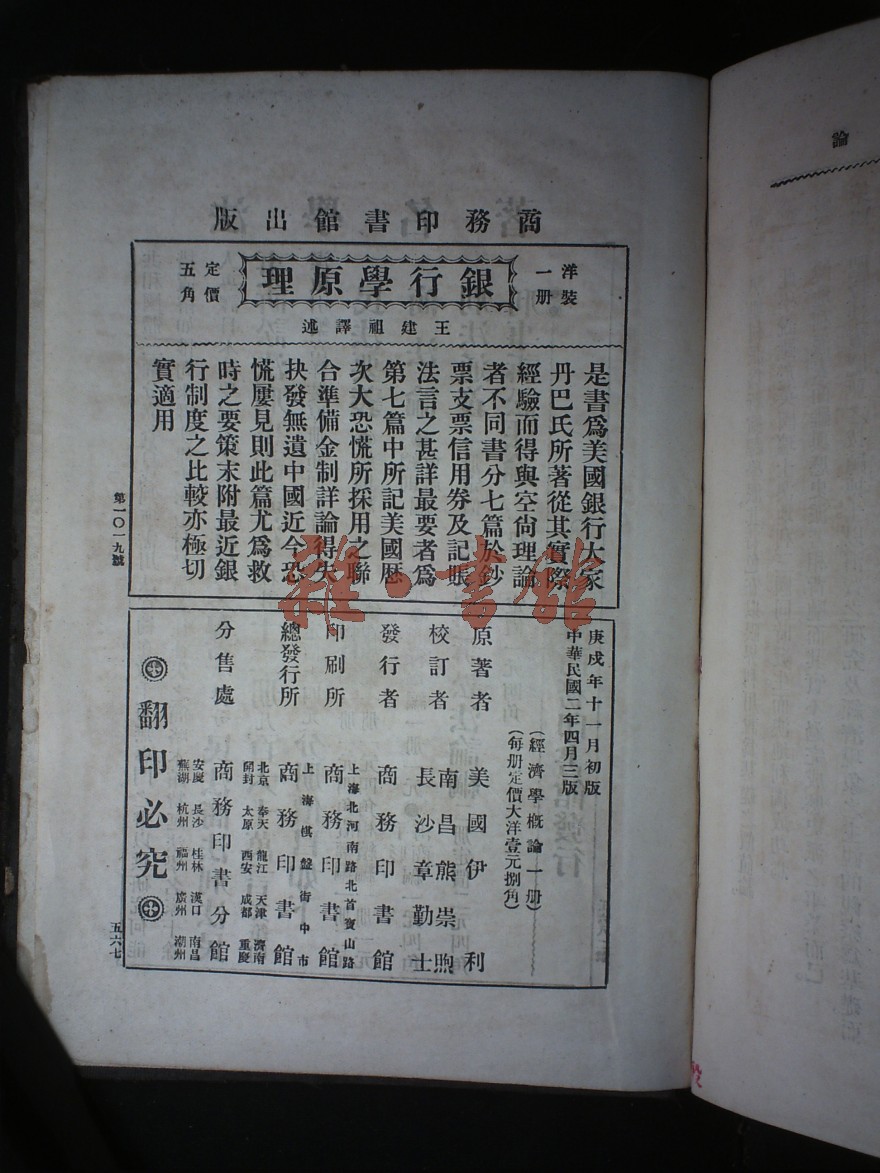 商務印書館出版
洋裝
一册
銀行學原理
定價
五角
王建祖譯述
是書爲美國銀行大家
丹巴氏所著從其實際
經驗而得與空尙理論
者不同書分七篇於鈔
票支票信用券及記賬
法言之甚詳最要者爲
第七篇中所記美國歷
次大恐慌所採用之聯
合準備金制詳論得失
抉發無遺中國近今恐
慌屢見則此篇尤爲救
時之要策末附最近銀
行制度之比較亦極切
實適用
第一〇一九號
庚戌年十一月初版
中華民國二年四月三版
(經濟學概論一册)
(每册定價大洋壹元捌角)
原著者 美國伊利
校訂者 南昌熊崇煦
長沙章勤士
發行者 商務印書館
印刷所 上海北河南路北首寶山路
商務印書館
總發行所 上海棋盤街中市
商務印書館
分售處 北京 奉天 龍江 天津 濟南
開封 太原 西安 成都 重慶
商務印書分館
安慶 長沙 桂林 漢口 南昌
蕪湖 杭州 福州 廣州 潮州
翻印必究
五六七
論
雜·書館